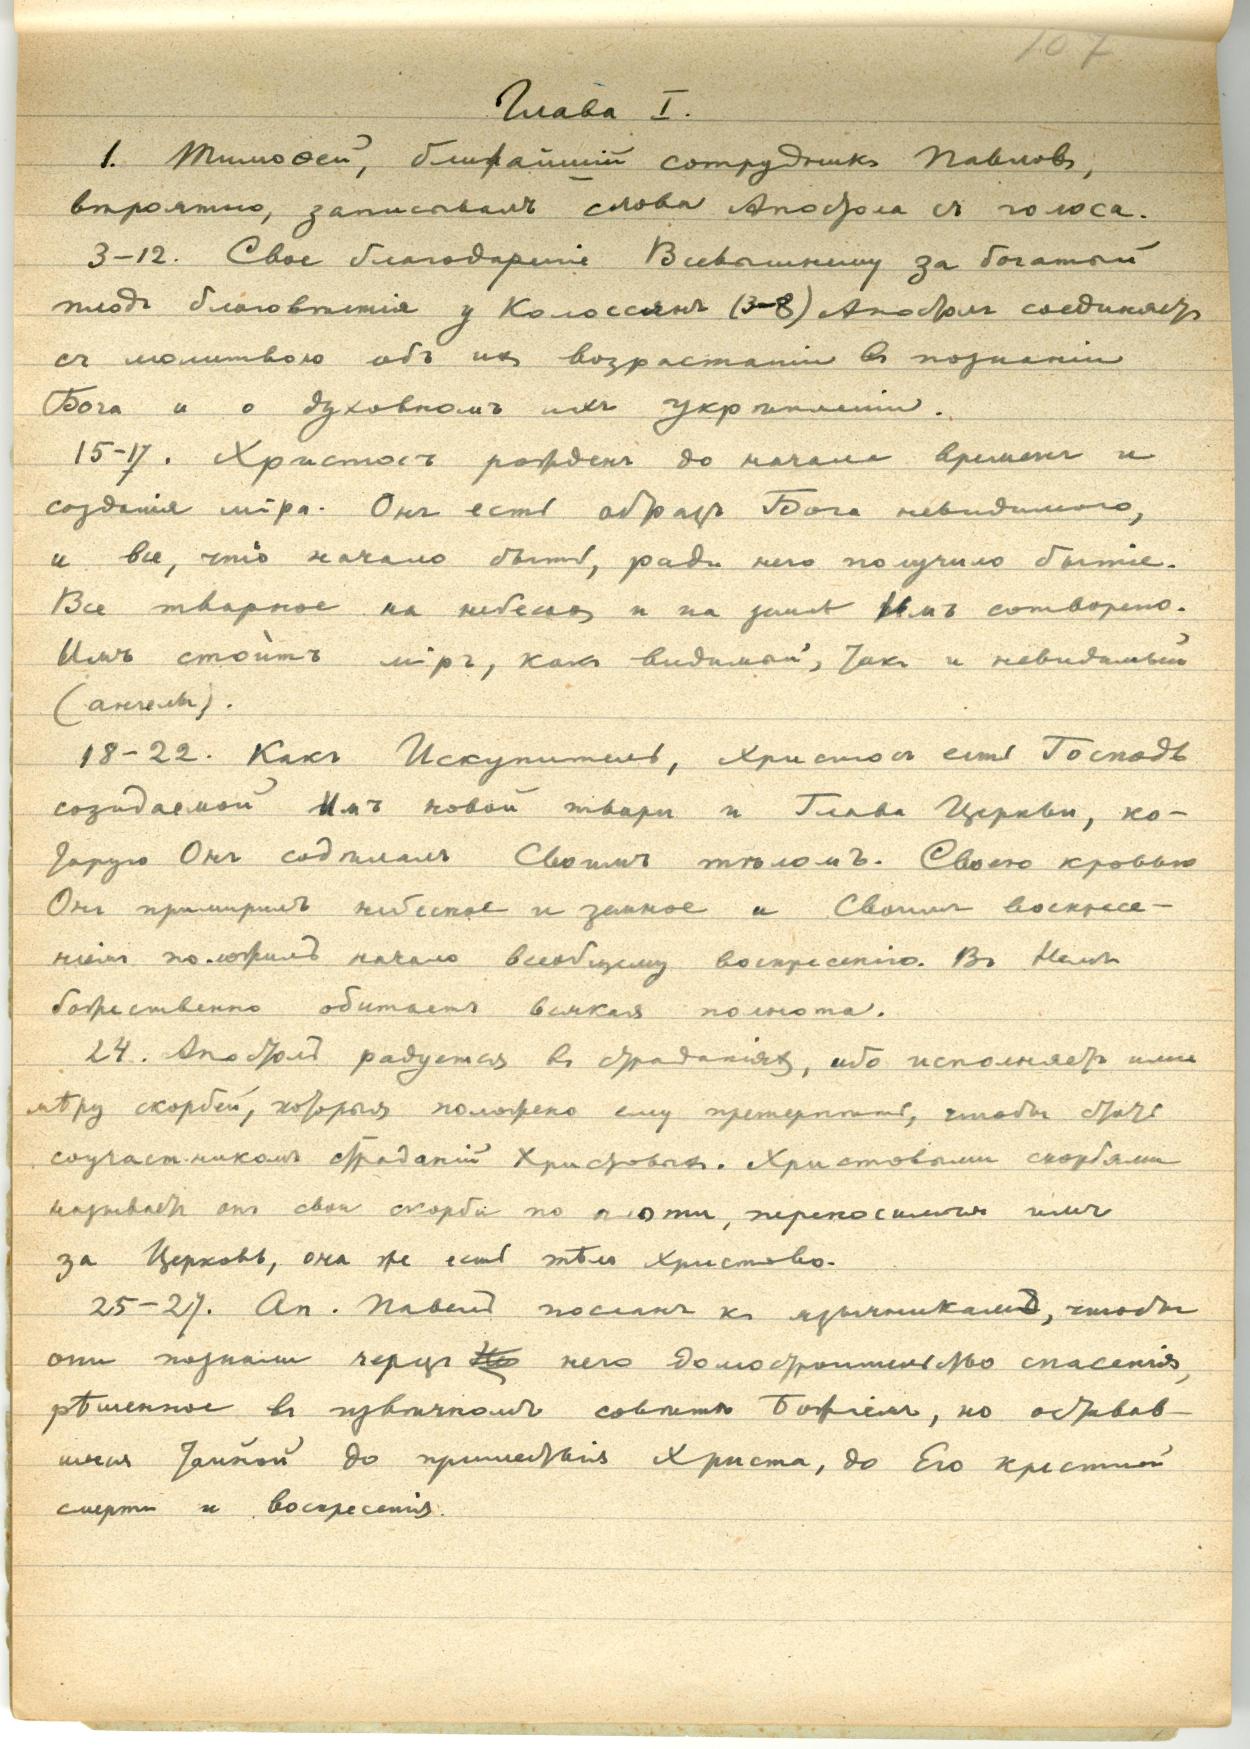 107
Глава I.
1. Тимоѳей, ближайшій сотрудникъ Павловъ,
вѣроятно, записывалъ слова Апостола съ голоса.
3–12. Свое благодареніе Всевышнему за богатый
плодъ благовѣстія у Колоссянъ (3–8) Апостолъ соединяетъ
съ молитвою объ ихъ возрастаніи въ познаніи
Бога и о духовномъ ихъ укрѣпленіи.
15–17. Христосъ рожденъ до начала временъ и
созданія міра. Онъ есть образъ Бога невидимаго,
и все, что начало быть, ради него получило бытіе.
Все тварное на небесахъ и на землѣ Имъ сотворено.
Имъ стоитъ міръ, какъ видимый, такъ и невидимый
(ангелы).
18–22. Какъ Искупитель, Христосъ есть Господь
созидаемой Имъ новой твари и Глава Церкви, ко-
торую Онъ содѣлалъ Своимъ тѣломъ. Своею кровью
Онъ примирилъ небесное и земное и Своимъ воскресе-
ніемъ положилъ начало всеобщему воскресенію. Въ Немъ
божественно обитаетъ всякая полнота.
24. Апостолъ радуется въ страданіяхъ, ибо исполняетъ ими
мѣру скорбей, которыя положено ему претерпѣть, чтобы стать
соучастникомъ страданій Христовыхъ. Христовыми скорбями
называетъ онъ свои скорби по плоти, переносимыя имъ
за Церковь, она же есть тѣло Христово.
25–27. Ап. Павелъ посланъ къ язычникамъ, чтобы
они познали черезъ него домостроительство спасенія,
рѣшенное въ превѣчномъ совѣтѣ Божіемъ, но оставав-
шееся тайной до пришествія Христа, до Его крестной
смерти и воскресенія.